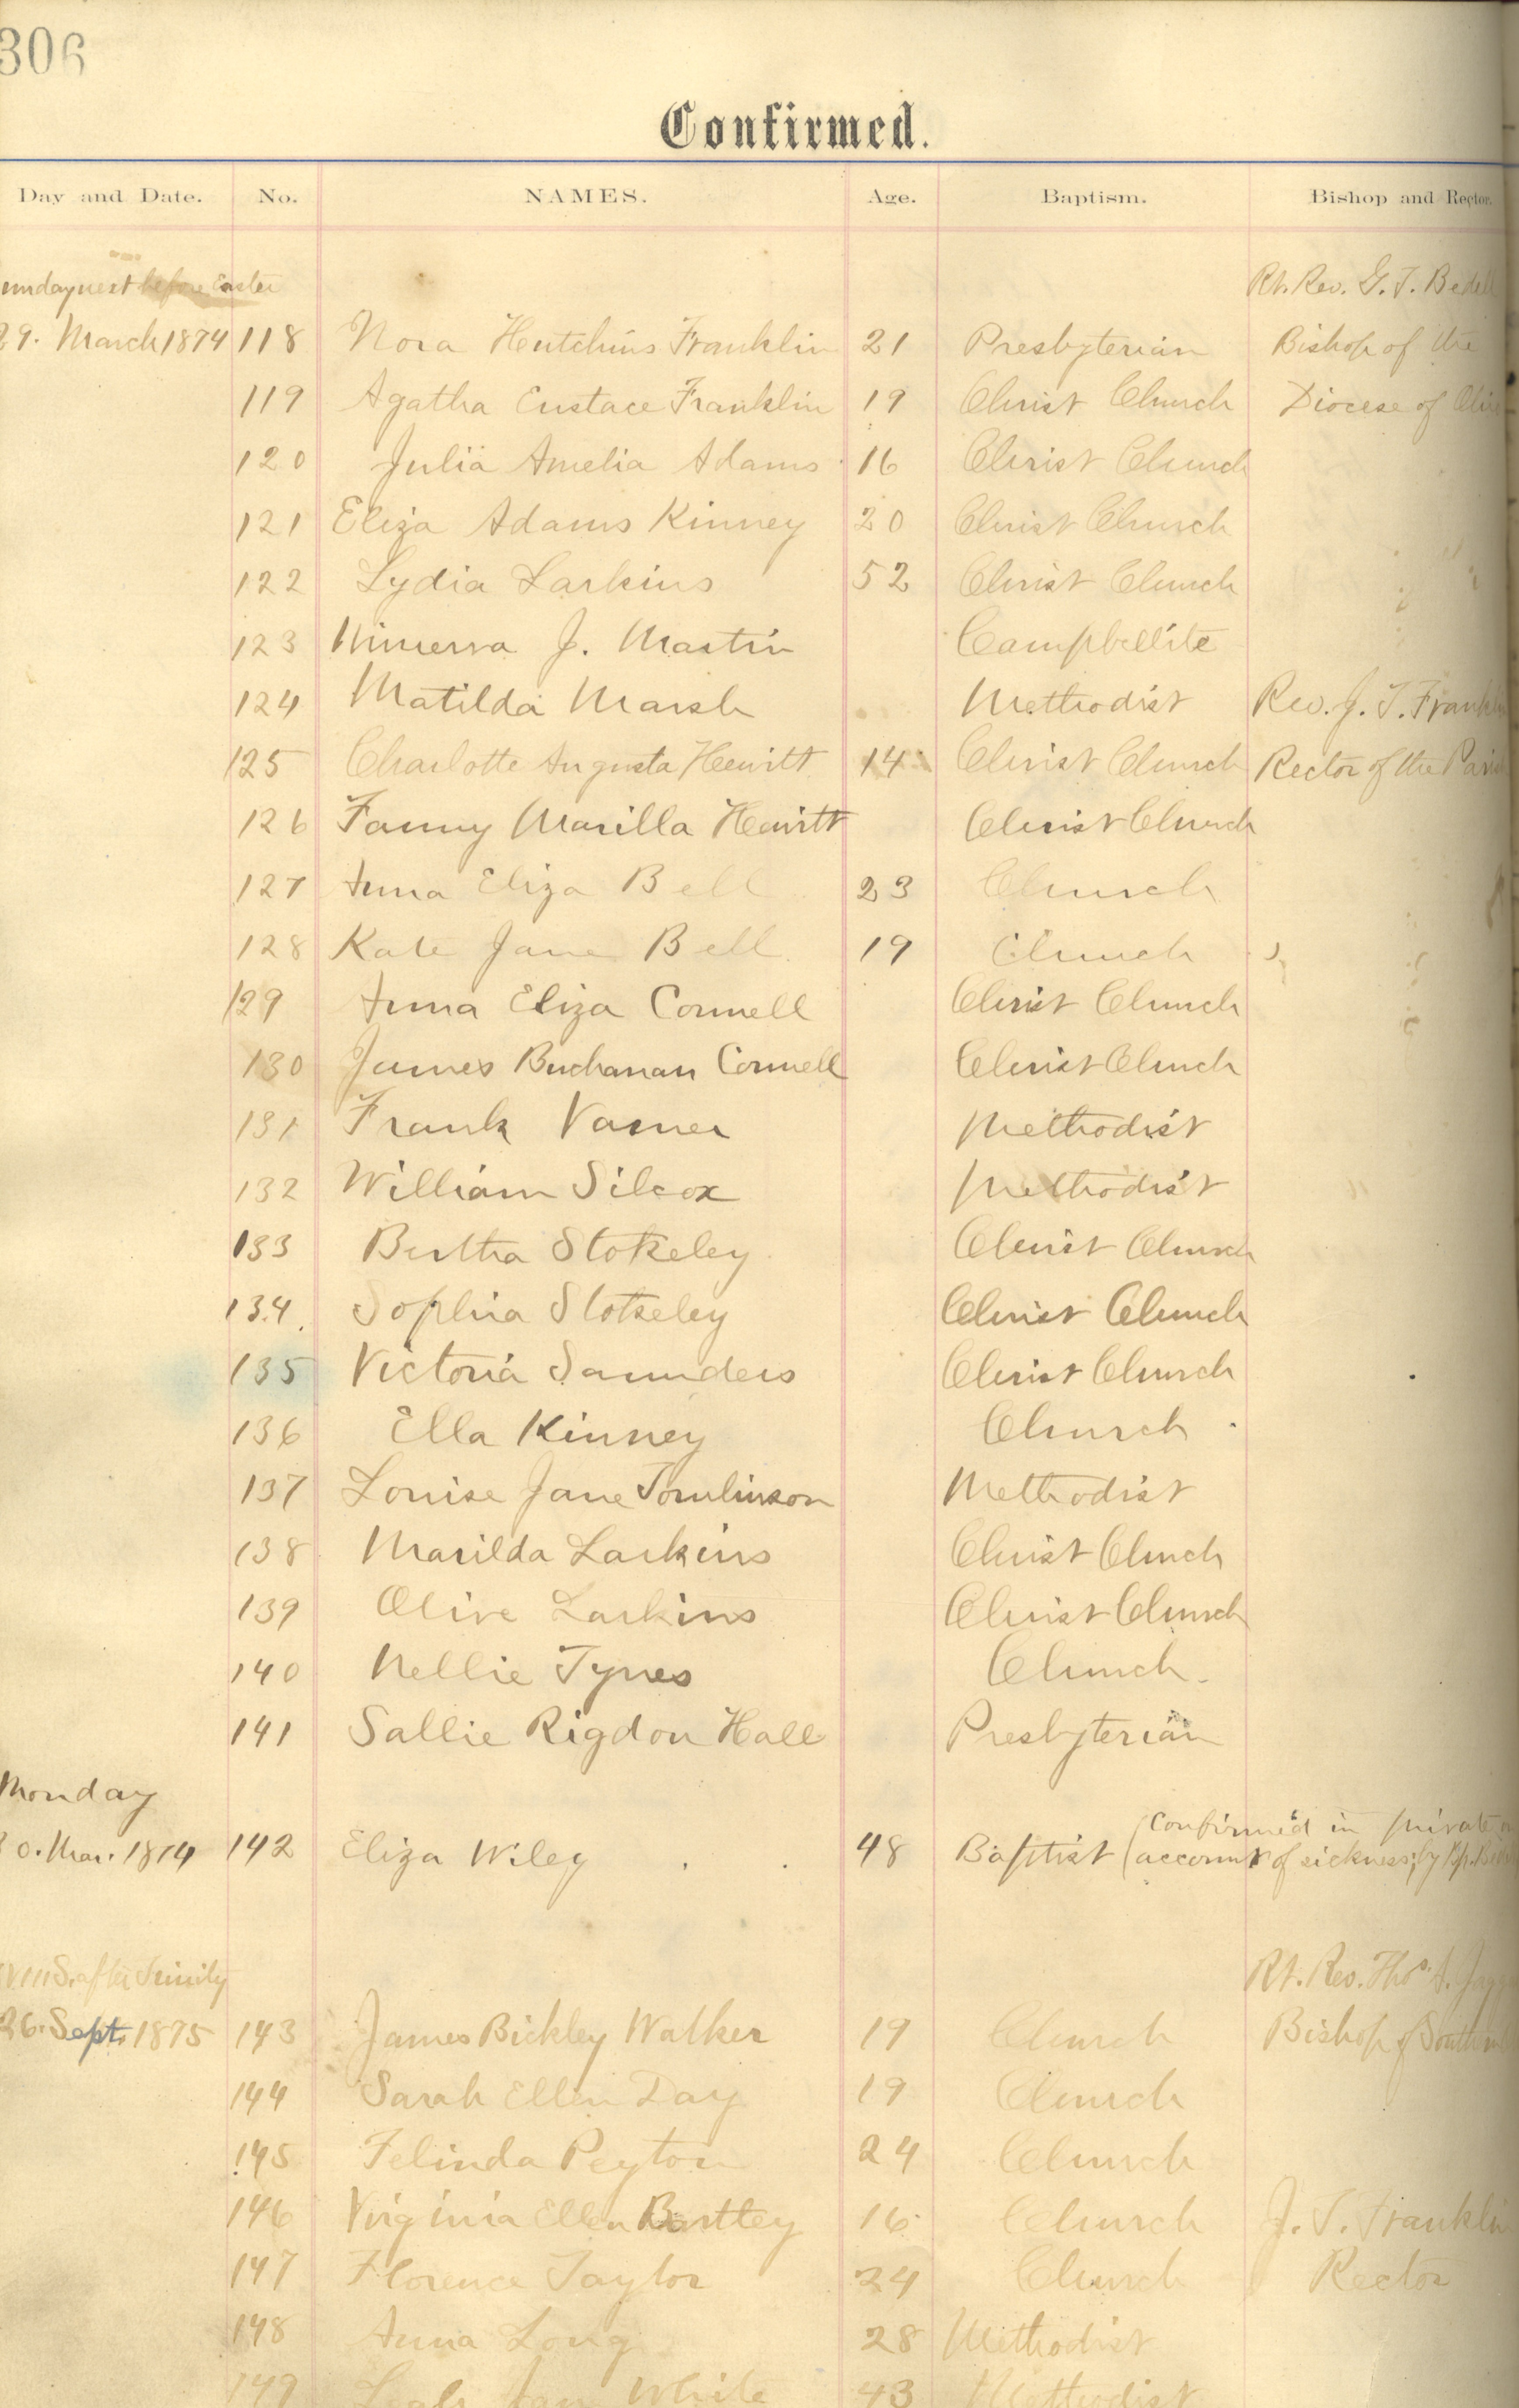 306
Confirmed.
Day and Date. No. NAMES. Age. Baptism. Bishop and Rector.
unday next before Easter Rt. Rev. G. T. Bedell
29. March 1874 118 Nora Hutchins Franklin 21 Presbyterian Bishop of the
119 Agatha Eustace Franklin 19 Christ Church Diocese of
120 Julia Amelia Adams 16 Christ Church
121 Eliza Adams Kinney 20 Christ Church
122 Lydia Larkins 52 Christ Church
123 Minerva J. Martin Campbellite
124 Matilda Marsh Methodist Rev. J. T. Franklin
125 Charlotte Augusta Hewitt 14 Christ Church Rector of the
126 Fanny Marilla Hewitt Christ Church
127 Anna Eliza Bell 23 Church
128 Kate Jane Bell 19 Church
129 Anna Eliza Connell Christ Church
130 James Buchanan Connell Christ Church
131 Frank Varner Methodist
132 William Silcox Methodist
133 Bertha Stokeley Christ Church
134. Sophia Stokeley Christ Church
135 Victoria Saunders Christ Church
136 Ella Kinney Church
137 Louise Jane Tomlinson Methodist
138 Marilda Larkins Christ Church
139 Olive Larkins Christ Church
140 Nellie Tynes Church.
141 Sallie Rigdon Hall Presbyterian
Monday (Confirmed in private
0. Mar. 1874 142 Eliza Wiley 48 Baptist (account of sickness, by Bp.
VIII S. after Trinity Rt. Rev. Thos. A.
26. Sept. 1875 143 James Bickley Walker 19 Church Bishop of
144 Sarah Ellen Day 19 Church
145 Felinda Peyton 24 Church
146 Virginia Ellen 16 Church J. T. Franklin
147 Florence Taylor 24 Church Rector
148 Anna Long 28 Methodist
149 Leah Jan White 43 Methodist